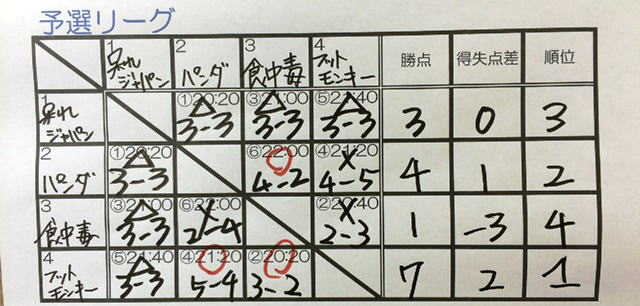 予選リーグ
1 2 3 4
ジャパン パンダ 食中毒 フットモンキー 勝点 得失点差 順位
1 ①20:20 ③21:00 ⑤21:40
ジャパン △ 3-3 △ 3-3 △ 3-3 3 0 3
2 ①20:20 ⑥22:00 ④21:20
パンダ △ 3-3 ○ 4-2 × 4-5 4 1 2
3 ③21:00 ⑥22:00 ②20:40
食中毒 △ 3-3 × 2-4 × 2-3 1 -3 4
4 ⑤21:40 ④21:20 ②20:20
フットモンキー △ 3-3 ○ 5-4 ○ 3-2 7 2 1